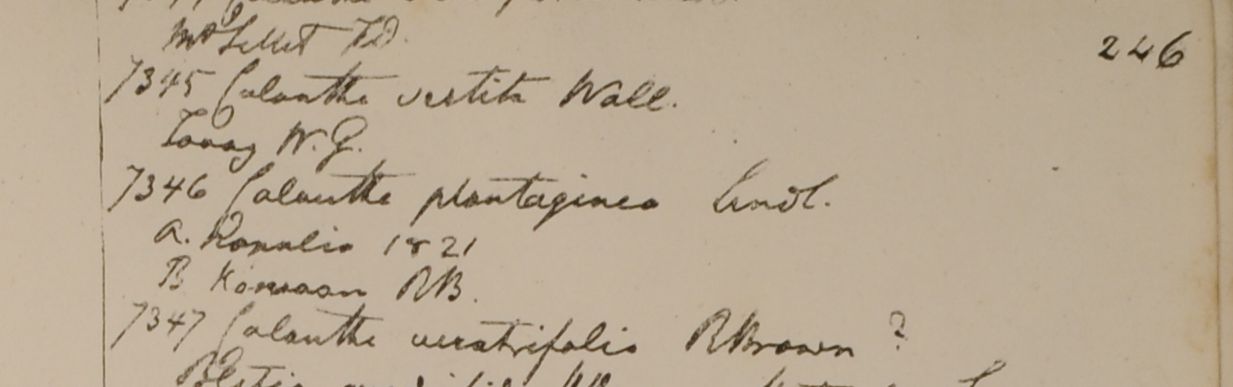 Mt Sillet F.D.
246
7345 Calanthe vestita Wall.
Tavoy W.G.
7346 Calanthe plantaginea Lindl.
A. Napalia 1821
B Kamaon RB.
7347 Calanthe veratrifolia RBrown ?